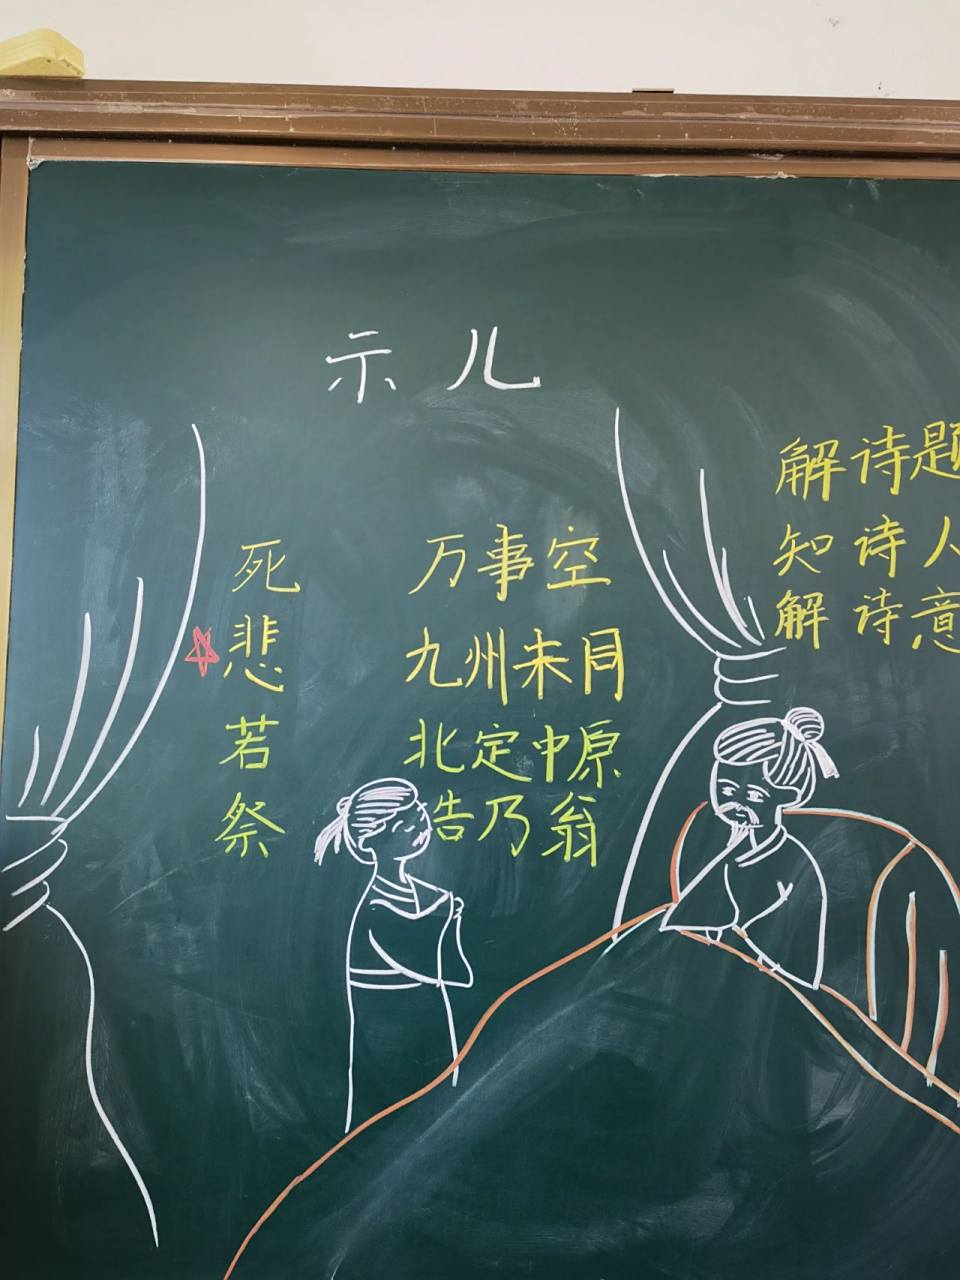 示儿
死 万事空
悲 九州未同
若 北定中原
祭 告乃翁
解诗题
知诗人
解诗意